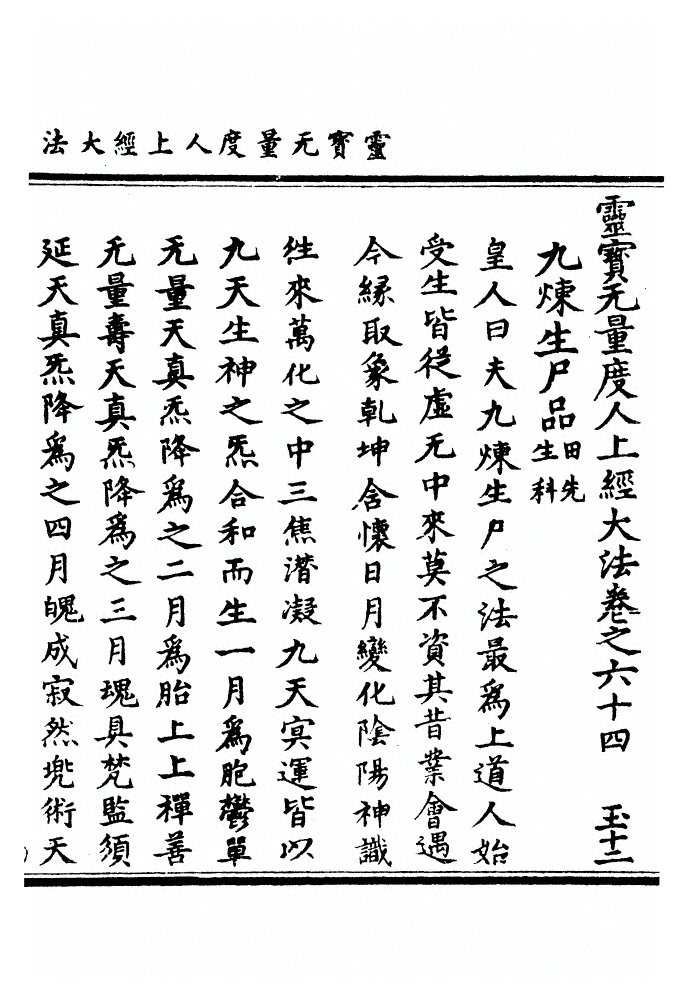 靈寳无量度人上經大法
靈寳无量度人上經大法卷之六十四　玉十二
九煉生尸品田先生科
皇人曰夫九煉生尸之法最爲上道人始
受生皆從虛无中來莫不資其昔業會遇
今縁取象乾坤含懷日月變化隂陽神識
徃來萬化之中三焦潛凝九天㝠運皆以
九天生神之炁合和而生一月爲胞鬱單
无量天真炁降爲之二月爲胎上上禪善
无量壽天真炁降爲之三月魂具梵監須
延天真炁降爲之四月魄成寂然兠術天